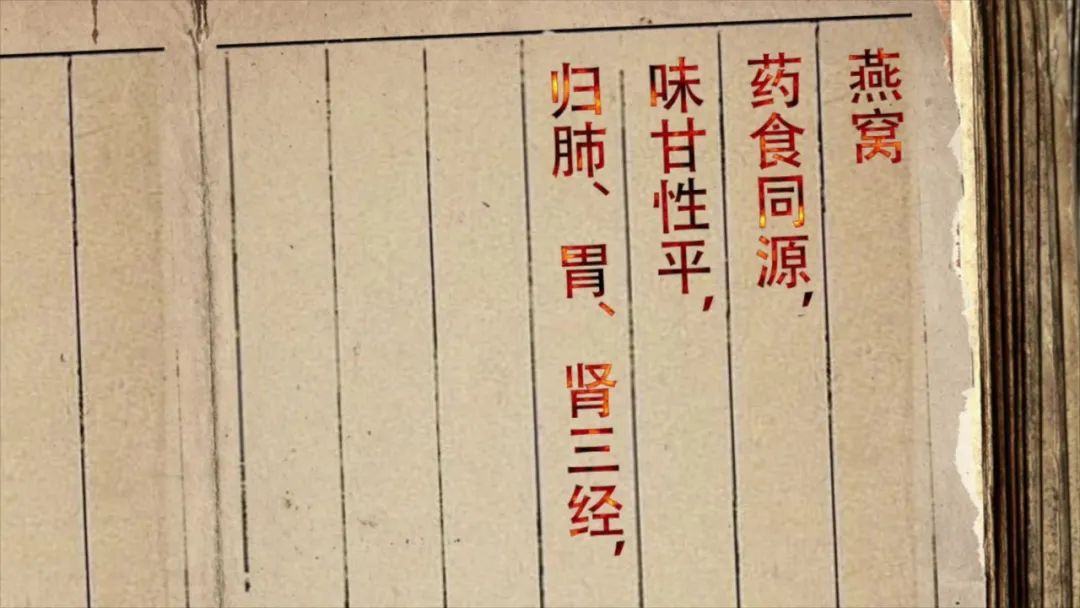 燕窝
药食同源，
味甘性平，
归肺、胃、肾三经，